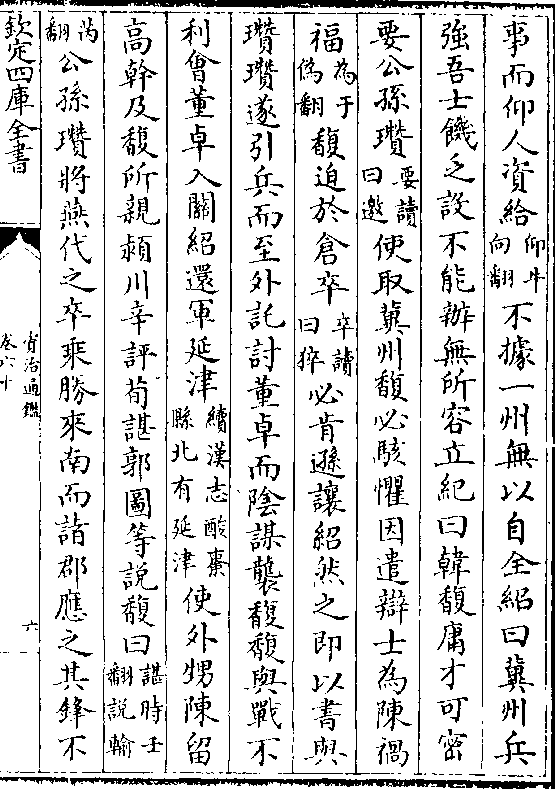 事而仰人資給仰牛向翻不據一州無以自全紹曰冀州兵
強吾士饑乏設不能辦無所容立紀曰韓馥庸才可密
要公孫瓚要讀曰邀使取冀州馥必駭懼因遣辯士為陳禍
福為于偽翻馥迫於倉卒卒讀曰猝必肯遜讓紹然之即以書與
瓚瓚遂引兵而至外託討董卓而陰謀襲馥馥與戰不
利會董卓入關紹還軍延津續漢志酸棗縣北有延津使外甥陳留
高幹及馥所親潁川辛評荀諶郭圖等說馥曰諶時壬翻說輸
芮翻公孫瓚將燕代之卒乘勝來南而諸郡應之其鋒不
欽定四庫全書
資治通鑑
卷六十
六